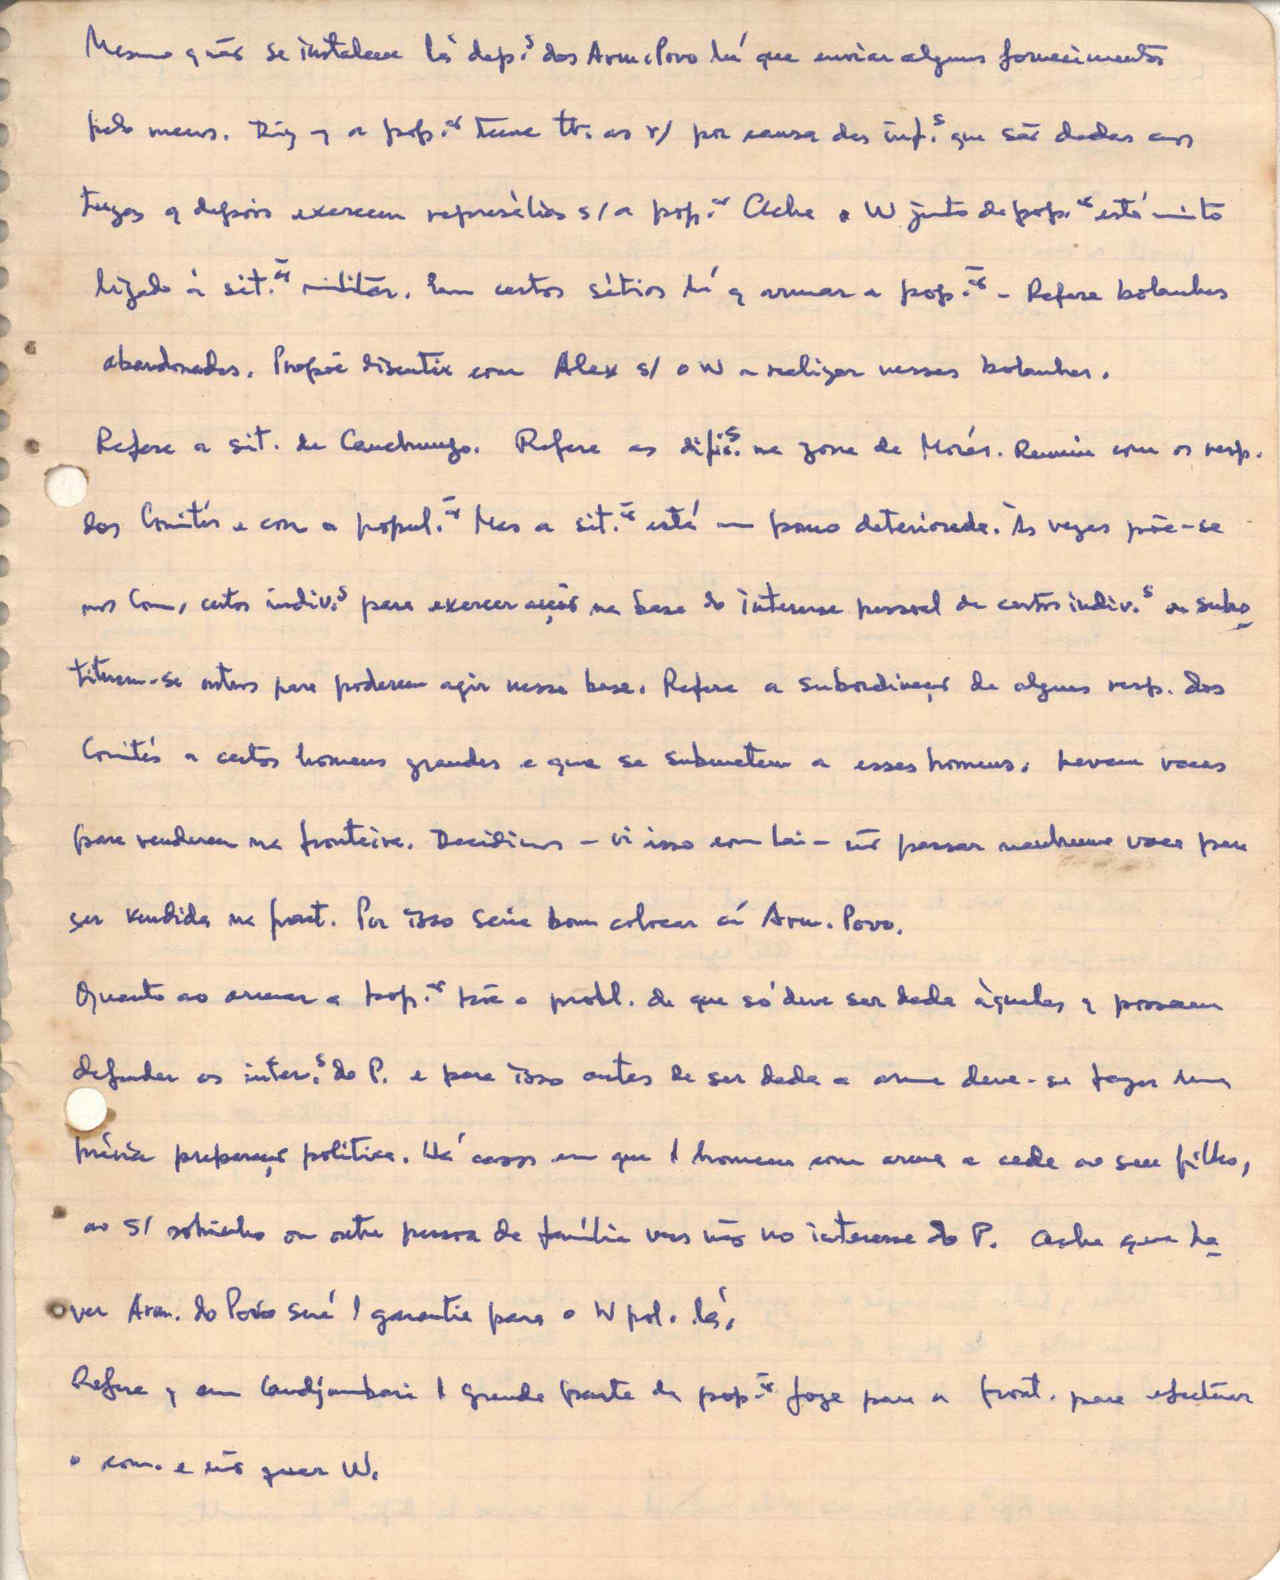 Mesmo q não se instalasse lá dep.s dos Arm. Povo há que enviar alguns fornecimentos
pelo menos. Diz q a pop.ão teme tb. as r/ por causa das inf.s que são dadas aos
tugas q depois exercem represálias s/ a pop.ão Acha o W junto da pop.ão está muito
ligado à sit.ão militar. Em certos sítios há q armar a pop.ão - Refere bolanhas
abandonadas. Propõe discutir com Alex s/ o W a realizar nessas bolanhas.
Refere a sit. de Canchungo. Refere as dific.s na zona de Morés. Reuniu com os resp.
dos Comités e com a popul.ão Mas a sit.ão está um pouco deteriorada. Às vezes põe-se
nos Com. certos indiv.s para exercer acção na base do interesse pessoal de certos indiv.s ou subs
tituem-se outros para poderem agir nessa base. Refere a subordinação de alguns resp. dos
Comités a certos homens grandes e que se submetem a esses homens. Levam vacas
para venderem na fronteira. Decidimos - vi isso com Lai - não passar nenhuma vaca para
ser vendida na front. Por isso seria bom colocar aí Arm. Povo.
Quanto ao armar a pop.ão põe o probl. de que só deve ser dada àqueles q possam
defender os inter.s do P. e para isso antes de ser dada a arma deve-se fazer uma
prévia preparação política. Há casos em que 1 homem com arma a cede ao seu filho,
ao s/ sobrinho ou outra pessoa de família mas não no interesse do P. Acha que ha
ver Arm. do Povo será 1 garantia para o W pol. lá.
Refere q em Candjambari 1 grande parte da pop.ão foge para a front. para efectuar
o com. e não quer W.